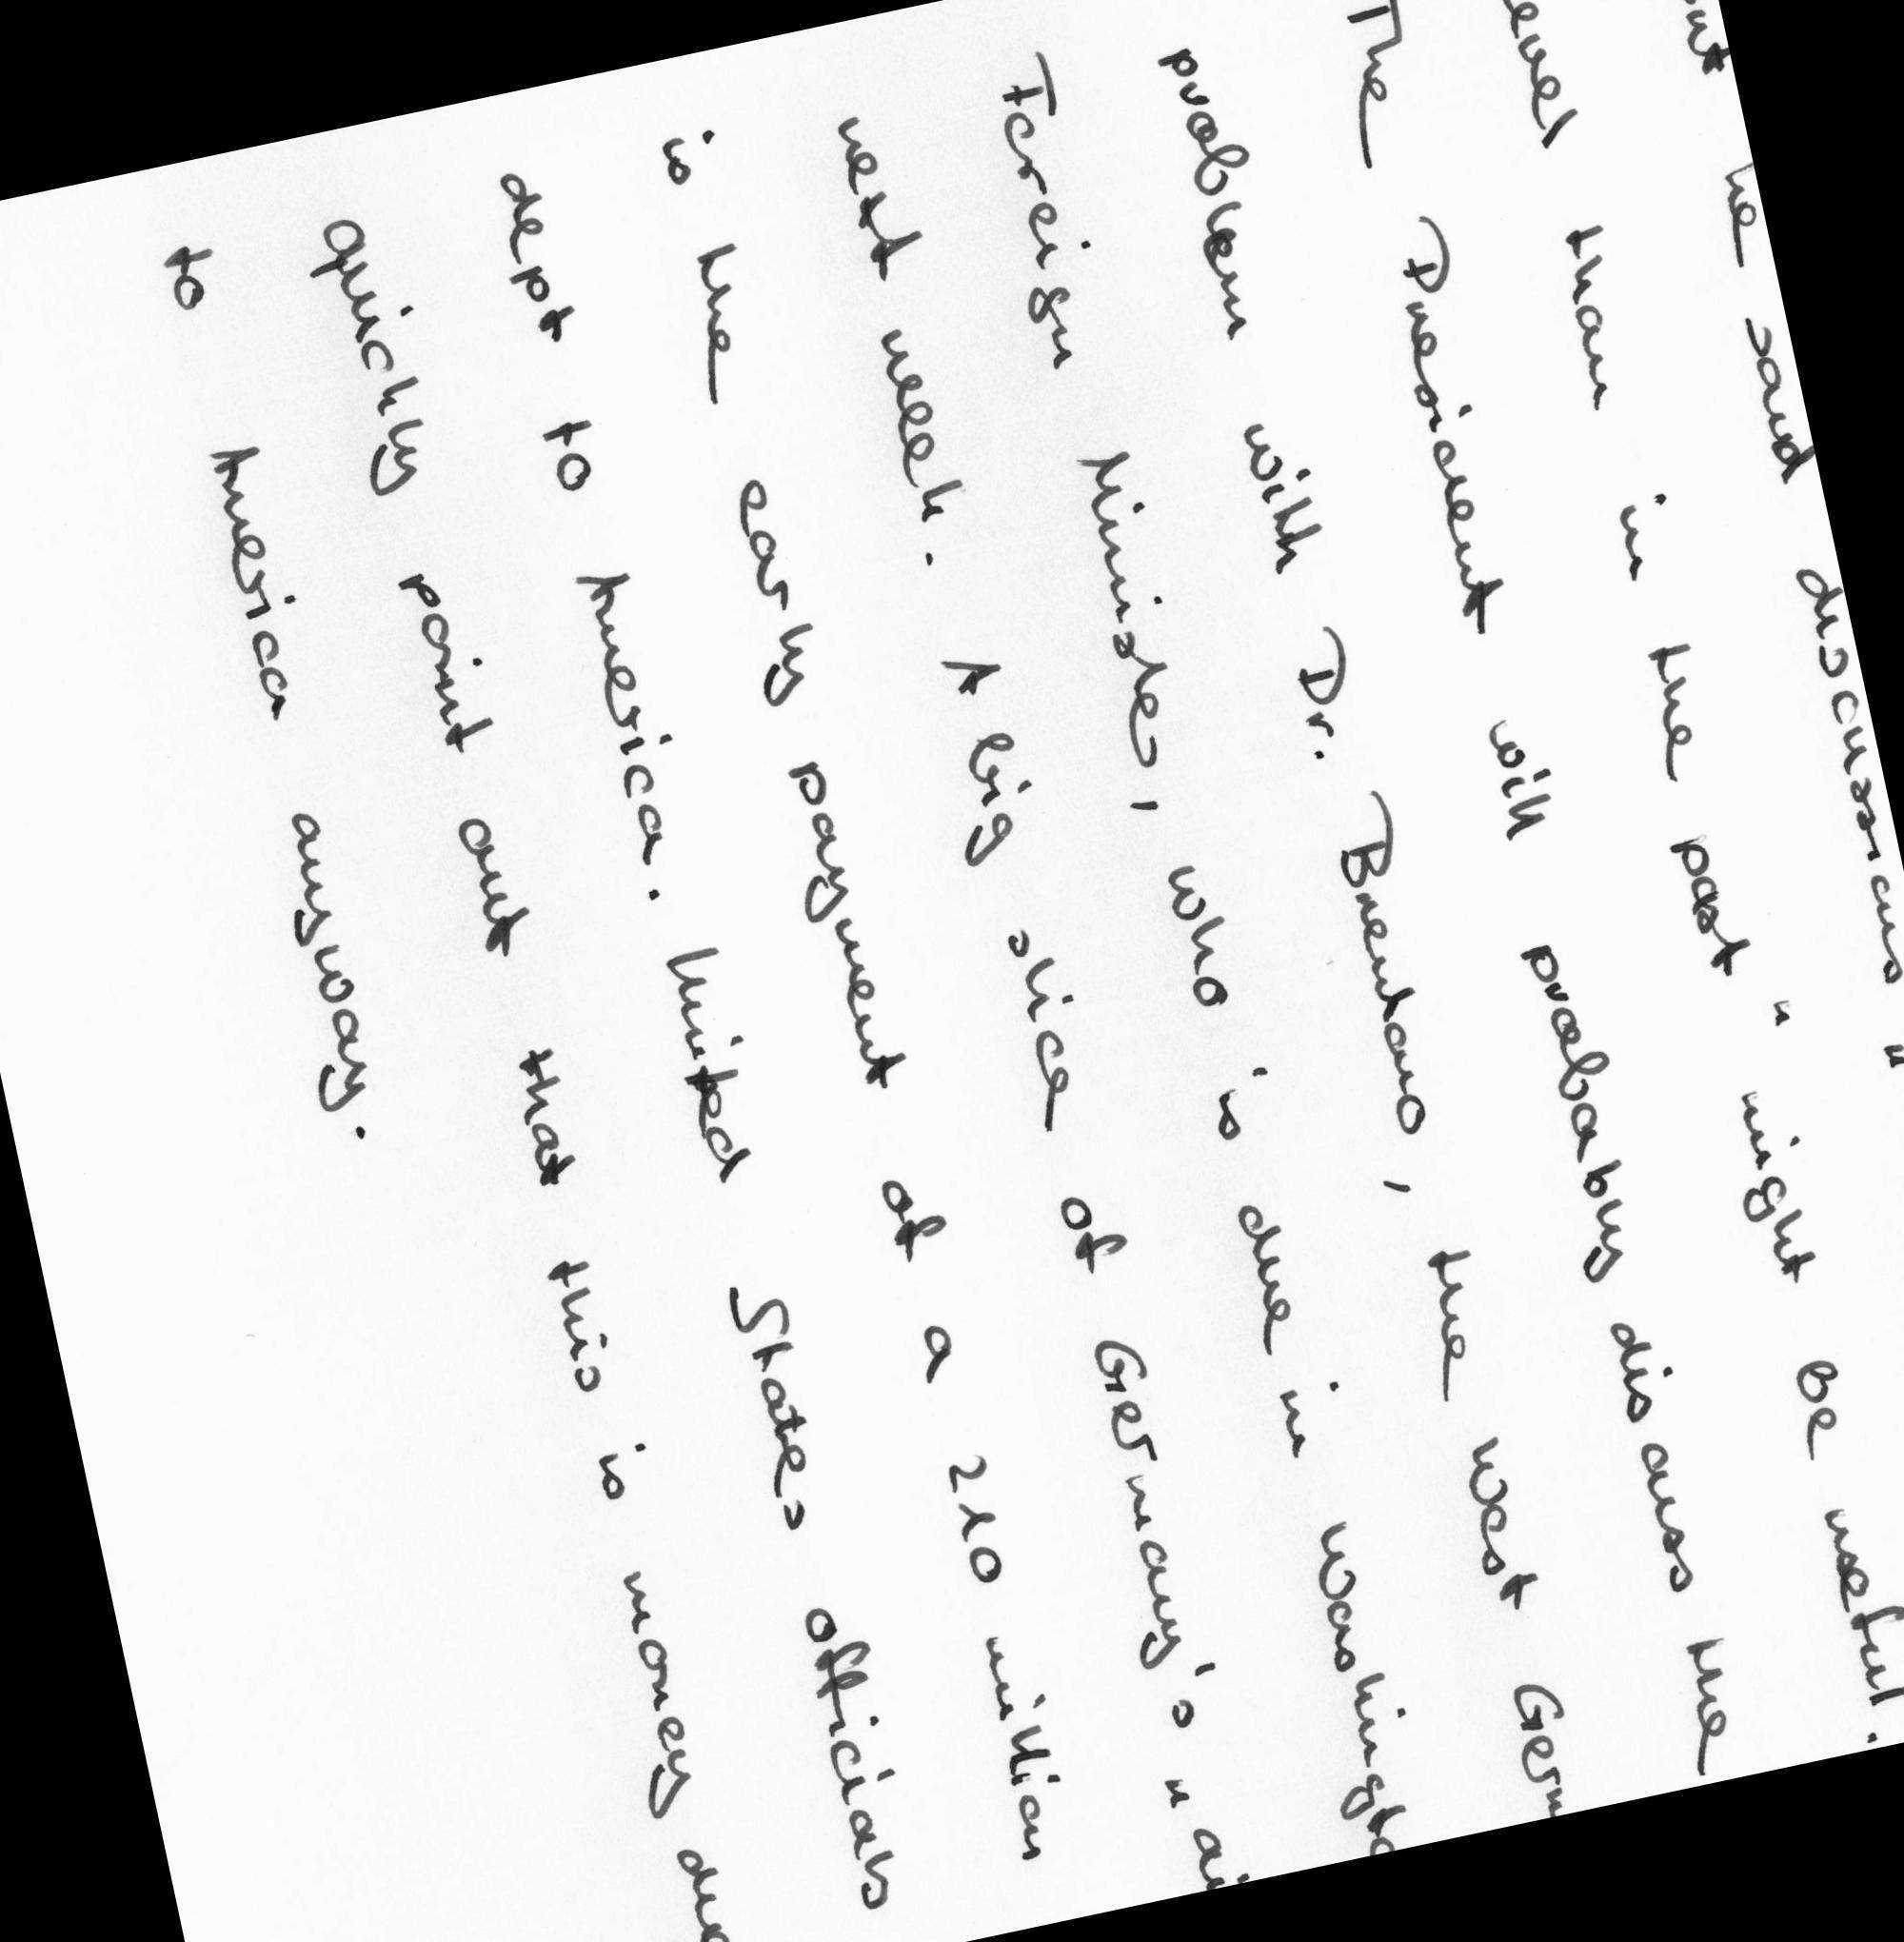 he said discussions "
than in the past " might be useful.
The President will probably discuss the
problem with Dr. Brentano, the West
Foreign Minister, who is due in
next week. A big slice of Germany's "
is the early payment of a 210 million
dept to America. United States officials
quickly point out that this is money
to America anyway.